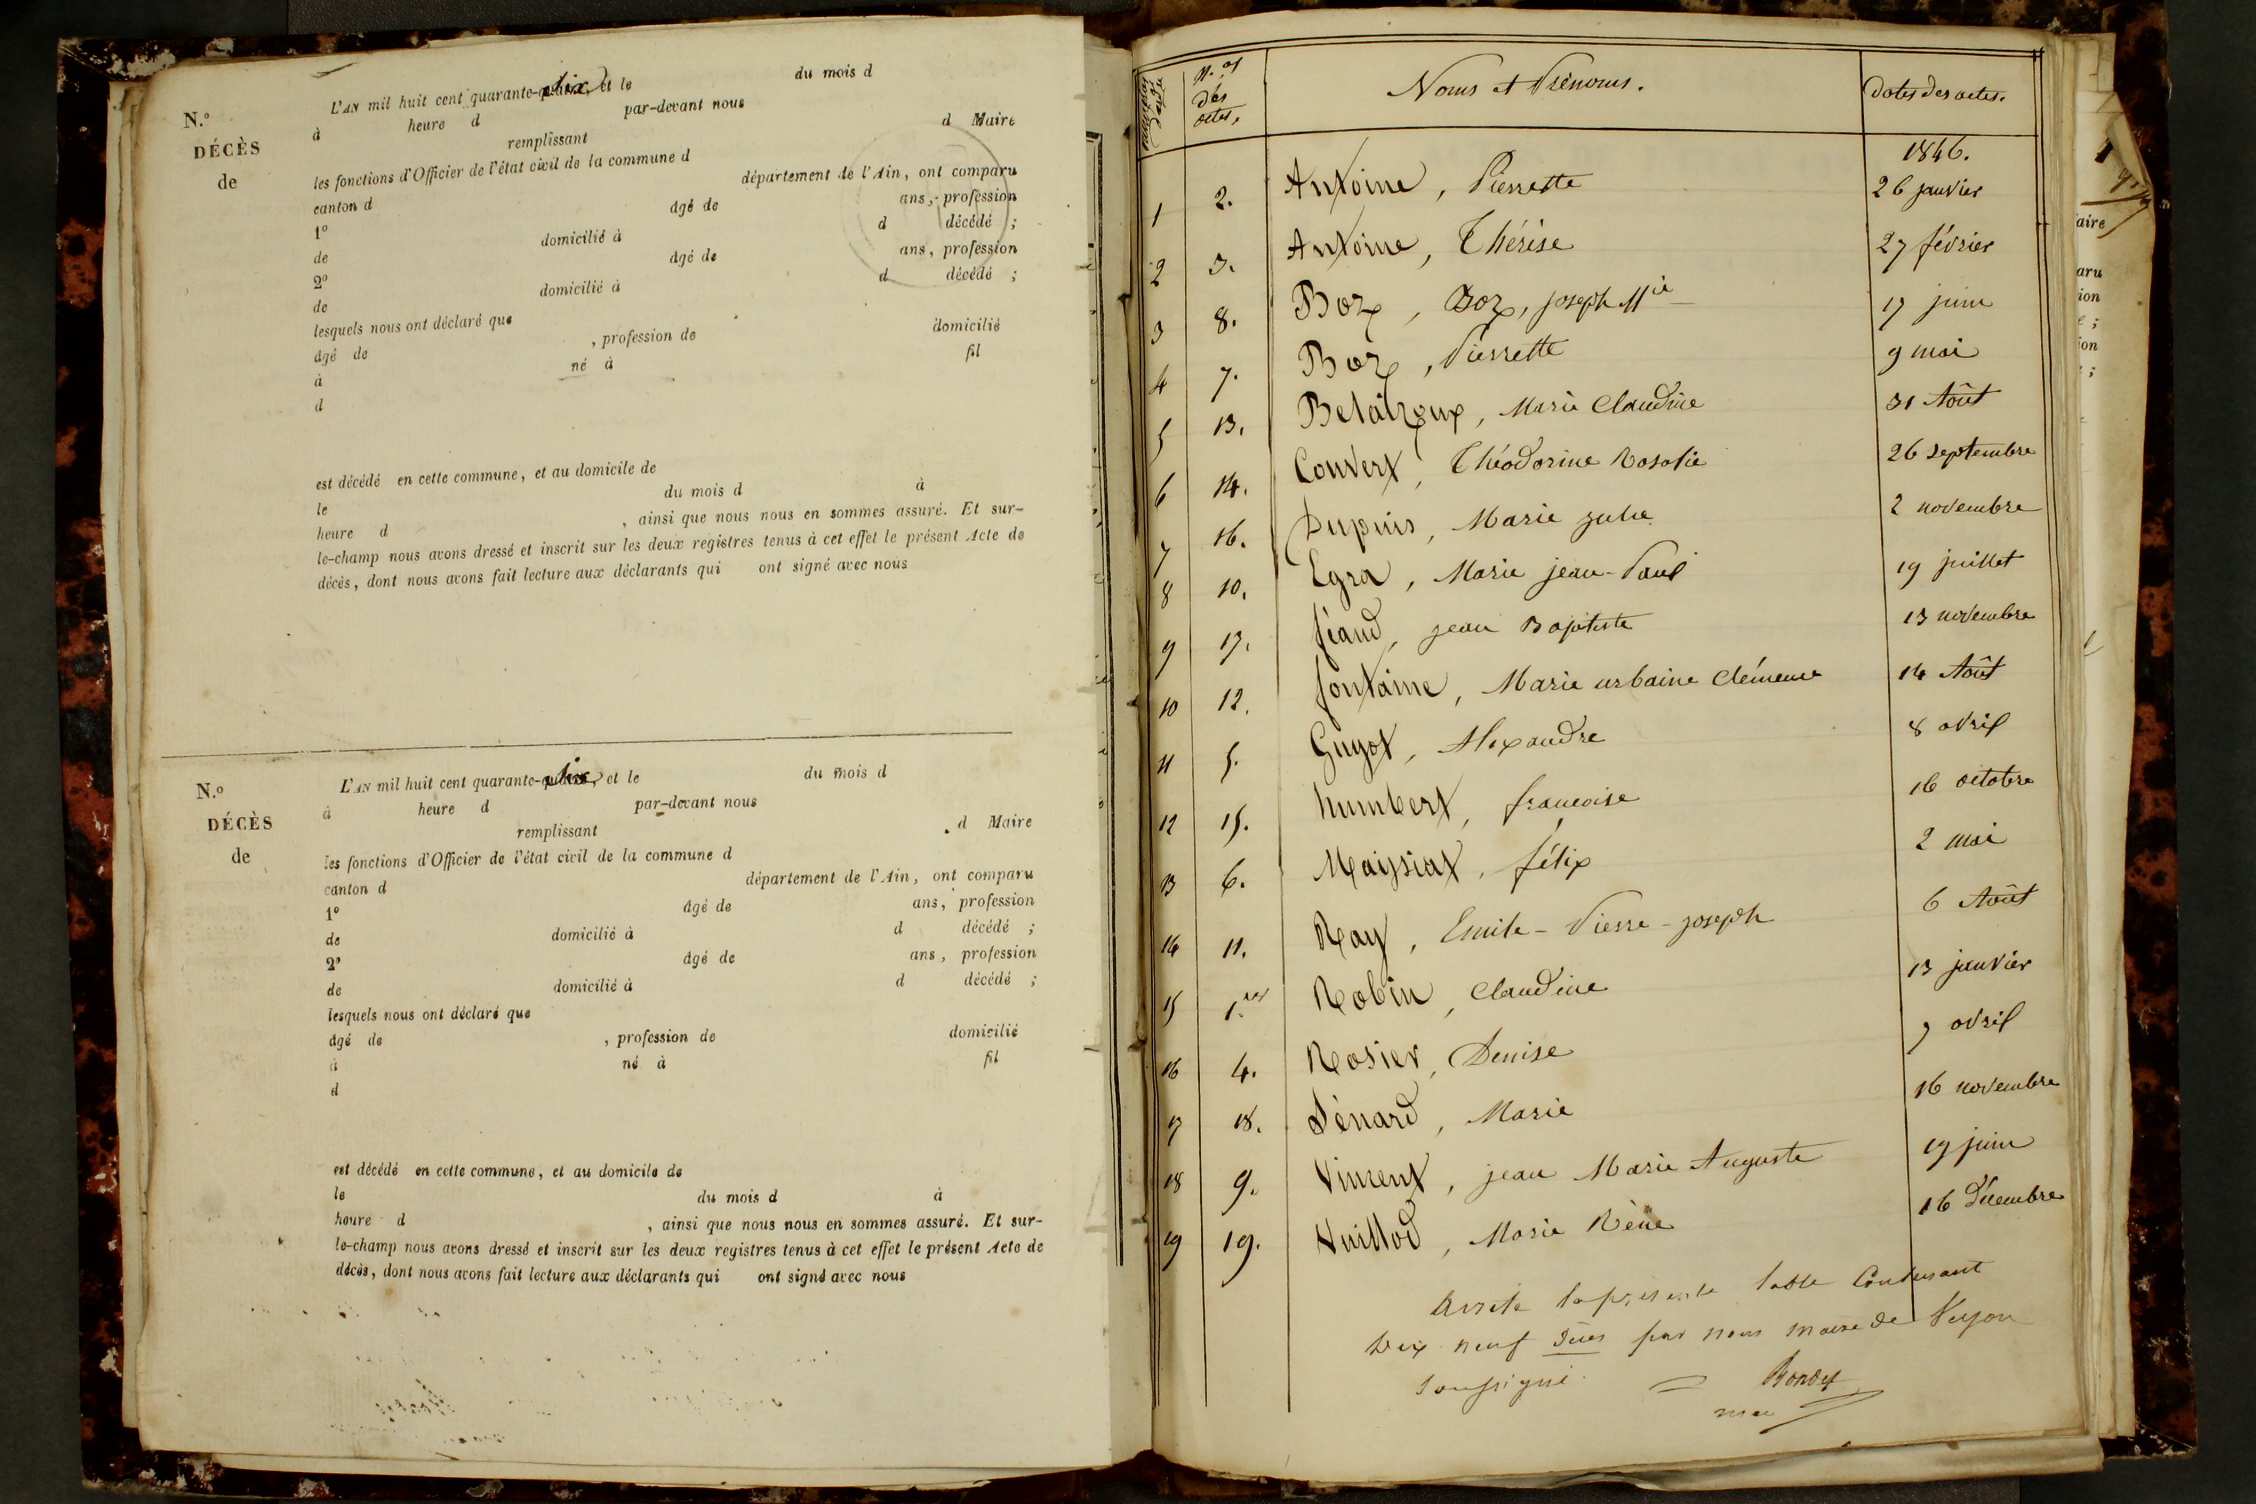 L'AN mil huit cent quarante-six, et le du mois d
à heure d par-devant nous
N.° remplissant d Maire
DÉCÈS les fonctions d'Officier de l'état civil de la commune d
de canton d département de l'Ain, ont comparu
1° âgé de ans, profession
de domicilié à d décédé ;
2° âgé de ans, profession
de domicilié à d décédé ;
lesquels nous ont déclaré que
âgé de , profession de domicilié
à né à fil
d
est décédé en cette commune, et au domicile de
le du mois d à
heure d , ainsi que nous nous en sommes assuré. Et sur-
le-champ nous avons dressé et inscrit sur les deux registres tenus à cet effet le présent Acte de
décès, dont nous avons fait lecture aux déclarants qui ont signé avec nous
N.° L'AN mil huit cent quarante-six, et le du mois d
à heure d par-devant nous
DÉCÈS remplissant d Maire
de les fonctions d'Officier de l'état civil de la commune d
canton d département de l'Ain, ont comparu
1° âgé de ans, profession
de domicilié à d décédé ;
2° âgé de ans, profession
de domicilié à d décédé ;
lesquels nous ont déclaré que
âgé de , profession de domicilié
à né à fil
d
est décédé en cette commune, et au domicile de
le du mois d à
heure d , ainsi que nous nous en sommes assuré. Et sur-
le-champ nous avons dressé et inscrit sur les deux registres tenus à cet effet le présent Acte de
décès, dont nous avons fait lecture aux déclarants qui ont signé avec nous
N.os des actes. Noms et Prénoms. Dates des actes.
1846.
1 2. Antoine, Pierrette 26 janvier
2 3. Antoine, Thérèse 27 février
3 8. Boz, Boz, joseph Mie 17 juin
4 7. Boz, Pierrette 9 mai
5 13. Belaizoux, Marie Claudine 31 Août
6 14. Convert, Théodorine Rosalie 26 septembre
7 16. Dupuis, Marie julie 2 novembre
8 10. Egra, Marie jean-Paul 19 juillet
9 17. féaud, jean Baptiste 13 novembre
10 12. fontaine, Marie urbaine Clémence 14 Août
11 5. Guyot, Alexandre 8 avril
12 15. humbert, francoise 16 octobre
13 6. Maysiat, félix 2 mai
14 11. Ray, Emile-Pierre-joseph 6 Août
15 1.er Robin, Claudine 13 janvier
16 4. Rosier, Denise 7 avril
17 18. Sénard, Marie 16 novembre
18 9. Vincent, jean Marie Auguste 19 juin
19 19. Vuillod, Marie Rène 16 décembre
Arrêté la présente table Contenant
Dix neuf par nous maire de
soussigné.
aire
aru
ion
ion